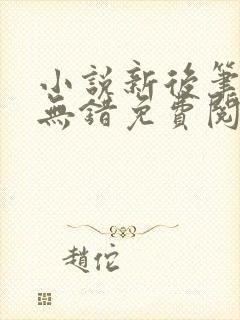 小説新後筆
無錯免費閱
趙佗